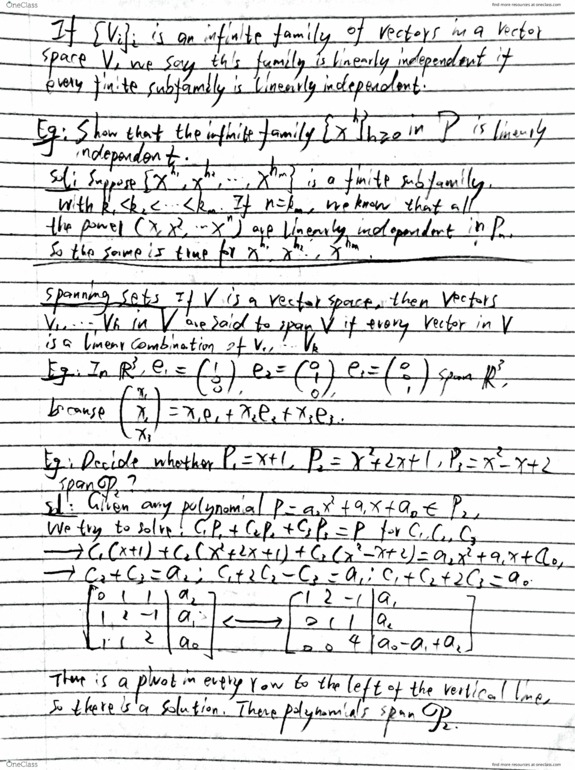 OneClass
find more resources at oneclass.com
If {Vi}i is an infinite family of vectors in a vector
space V, we say this family is linearly independent if
every finite subfamily is linearly independent.
Eg: Show that the infinite family {x^k}k≥0 in P is linearly
independent.
sol: Suppose {x^k1, x^k2, ..., x^km} is a finite subfamily.
with k1<k2<...<km. If n=km, we know that all
the power (x, x², ... x^n) are linearly independent in Pn.
So the same is true for x^k1, x^k2, ..., x^km.
Spanning sets If V is a vector space, then vectors
V1, ... Vk in V are said to span V if every vector in V
is a linear combination of V1, ... Vk
Eg: In R³, e1 = (1 0 0) e2 = (0 1 0) e3 = (0 0 1) span R³,
because (x1 x2 x3) = x1e1 + x2e2 + x3e3.
Eg: Decide whether P1 = x+1, P2 = x²+2x+1, P3 = x²-x+2
span P2?
sol: Given any polynomial P = a2x²+a1x+a0 ∈ P2,
We try to solve: C1P1 + C2P2 + C3P3 = P for C1, C2, C3
→ C1(x+1) + C2(x²+2x+1) + C3(x²-x+2) = a2x²+a1x+a0,
→ C2+C3 = a2; C1+2C2-C3 = a1; C1+C2+2C3 = a0
[0 1 1 | a2] [1 2 -1 | a1]
[1 2 -1 | a1] ⟷ [0 1 1 | a2]
[1 1 2 | a0] [0 0 4 | a0-a1+a2]
There is a pivot in every row to the left of the vertical line,
so there is a solution. These polynomials span P2.
OneClass
find more resources at oneclass.com